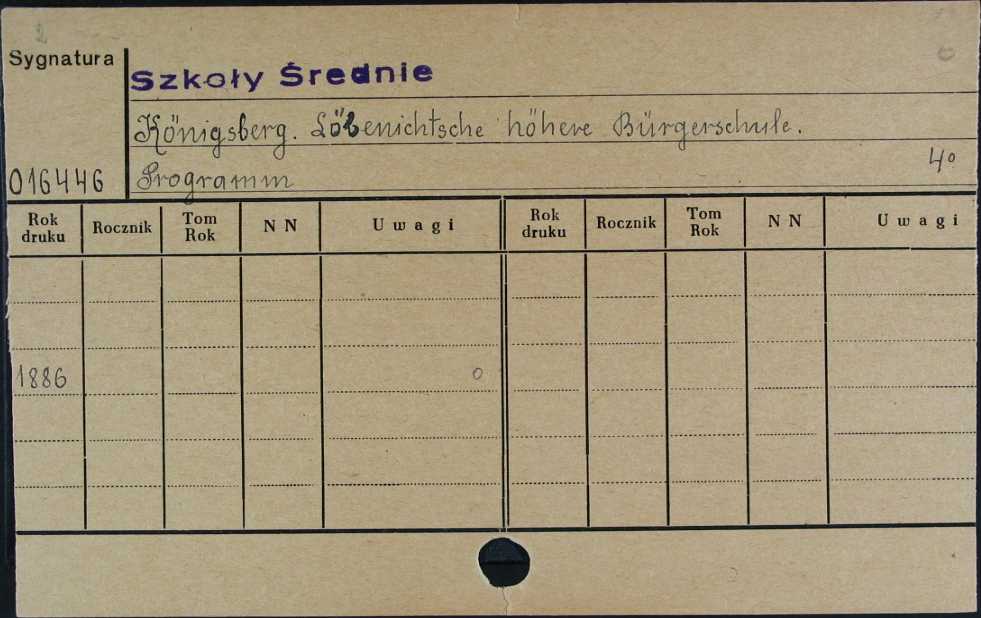 2
Sygnatura
Szkoły Średnie
Königsberg. Löbenichtsche höhere Bürgerschule.
4°
016446 Programm
Rok druku Rocznik Tom Rok N N Uwagi Rok druku Rocznik Tom Rok N N Uwagi
1886 o